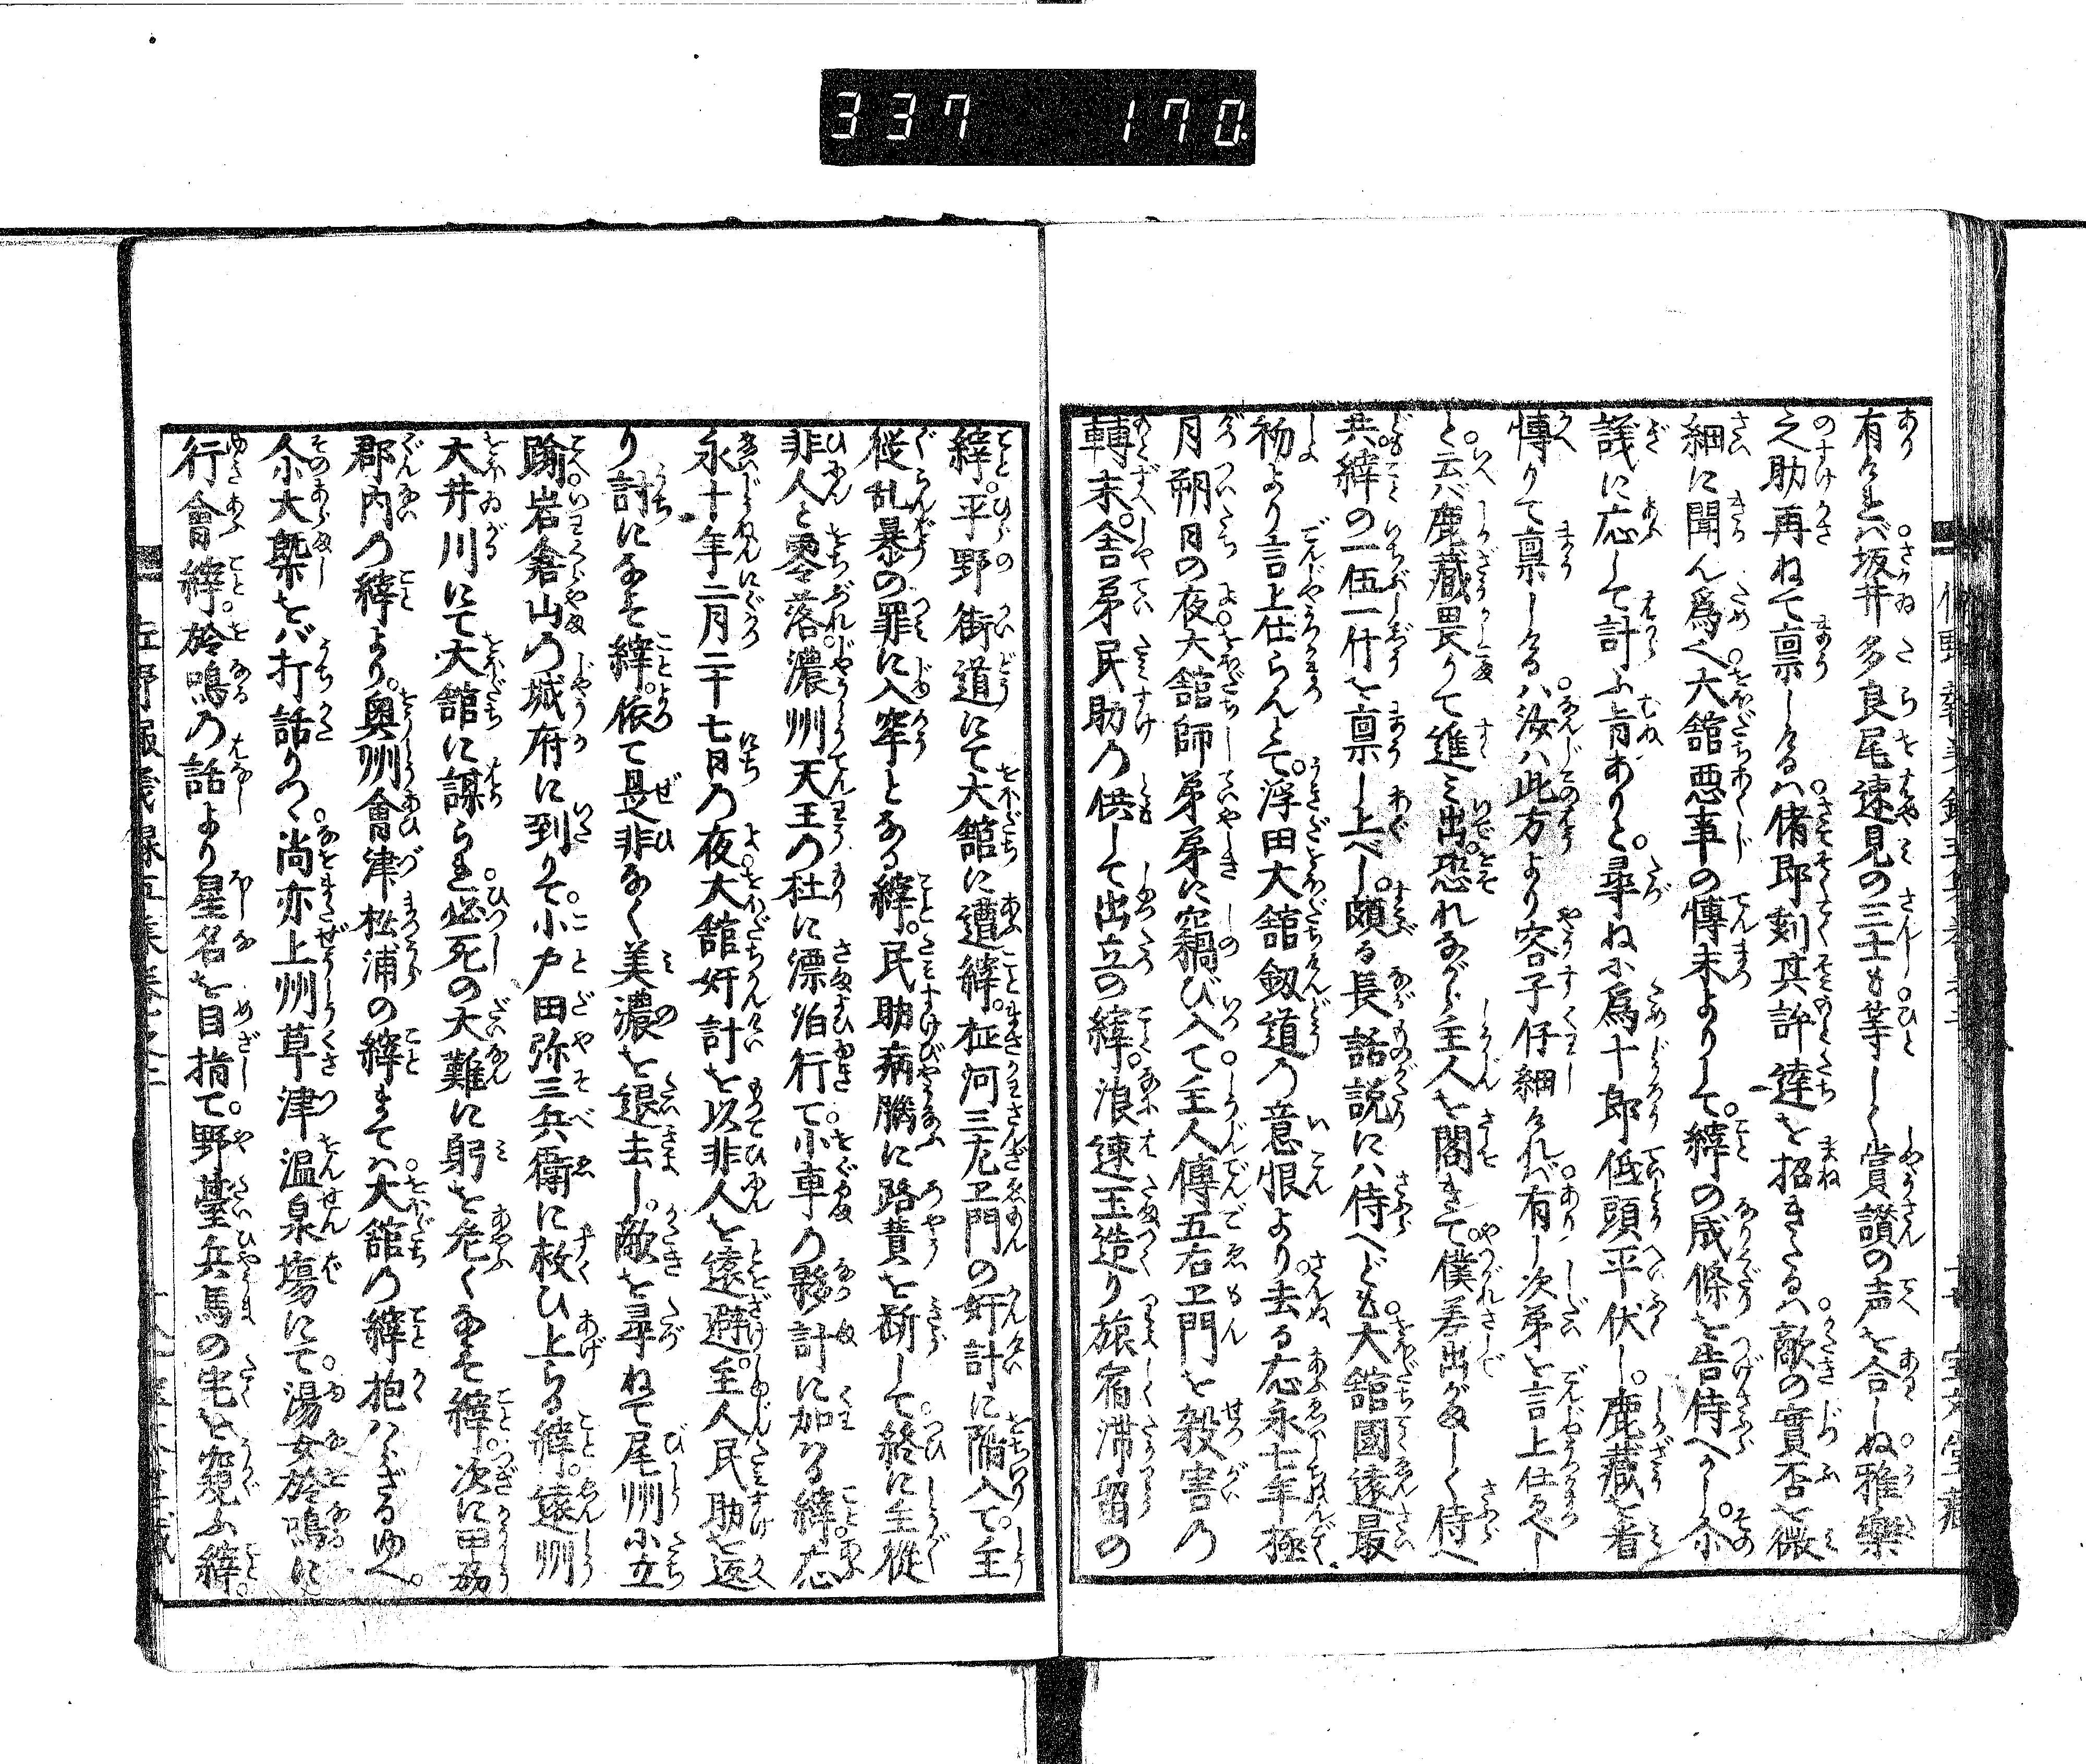 337 170.
有ければ。坂井多良尾速見の三士も等しく賞讃の声を合しぬ。雅樂
之助再ねて禀しけるハ。偖即刻其許達を招きたるハ。敵の實否を微
細に聞ん為へ。大舘悪事の傳末よりして。縡の成條を告侍へかし。尒
議に応して計ふ旨ありと。尋ねに為十郎低頭平伏し。鹿藏を省
憚りて禀しけるハ。汝ハ此方より容子仔細ければ。有し次弟を言上仕るべし
と。云バ鹿藏畏りて進ミ出。恐れながら主人を閣きて。僕差出がましく侍へ
共。縡の一伍一什を禀し上べし。頗る長話説にハ侍へども。大舘國遠最
初より言上仕らんとて。浮田大舘劔道の意恨より。去る応永七年極
月朔日の夜。大舘師弟弟に窬び入て。主人傳五右ヱ門を殺害の
轉末。舎弟民助の供して出立の縡。浪速玉造り旅宿滞留の
縡。平野街道にて大舘に遭縡。柾河三左ヱ門の奸計に陥入て。主
従乱暴の罪に入牢となる縡。民助病腦に路費を断して。終に主從
非人と零落。濃州天王の杜に漂泊行て。小車の夥計に加はる縡。応
永十年二月二十七日の夜。大舘奸計を以非人を遠避。主人民助を返
り討になせ縡。依て是非なく美濃を退去し。敵を尋ねて尾州小立
踰。岩倉山の城府に到りて。小戸田弥三兵衛に救ひ上らる縡。遠州
大井川にて大舘に謀られ。必死の大難に躬を危くなせ縡。次に甲劦
郡内の縡より。奥州會津松浦の縡まてハ。大舘の縡抱ハらざるゆへ。
尒大槩をバ打話りつゝ。尚亦上州草津温泉塲にて。湯女於鳴に
行會縡。於鳴の話より星名を目指て。野臺兵馬の宅を窺ふ縡。